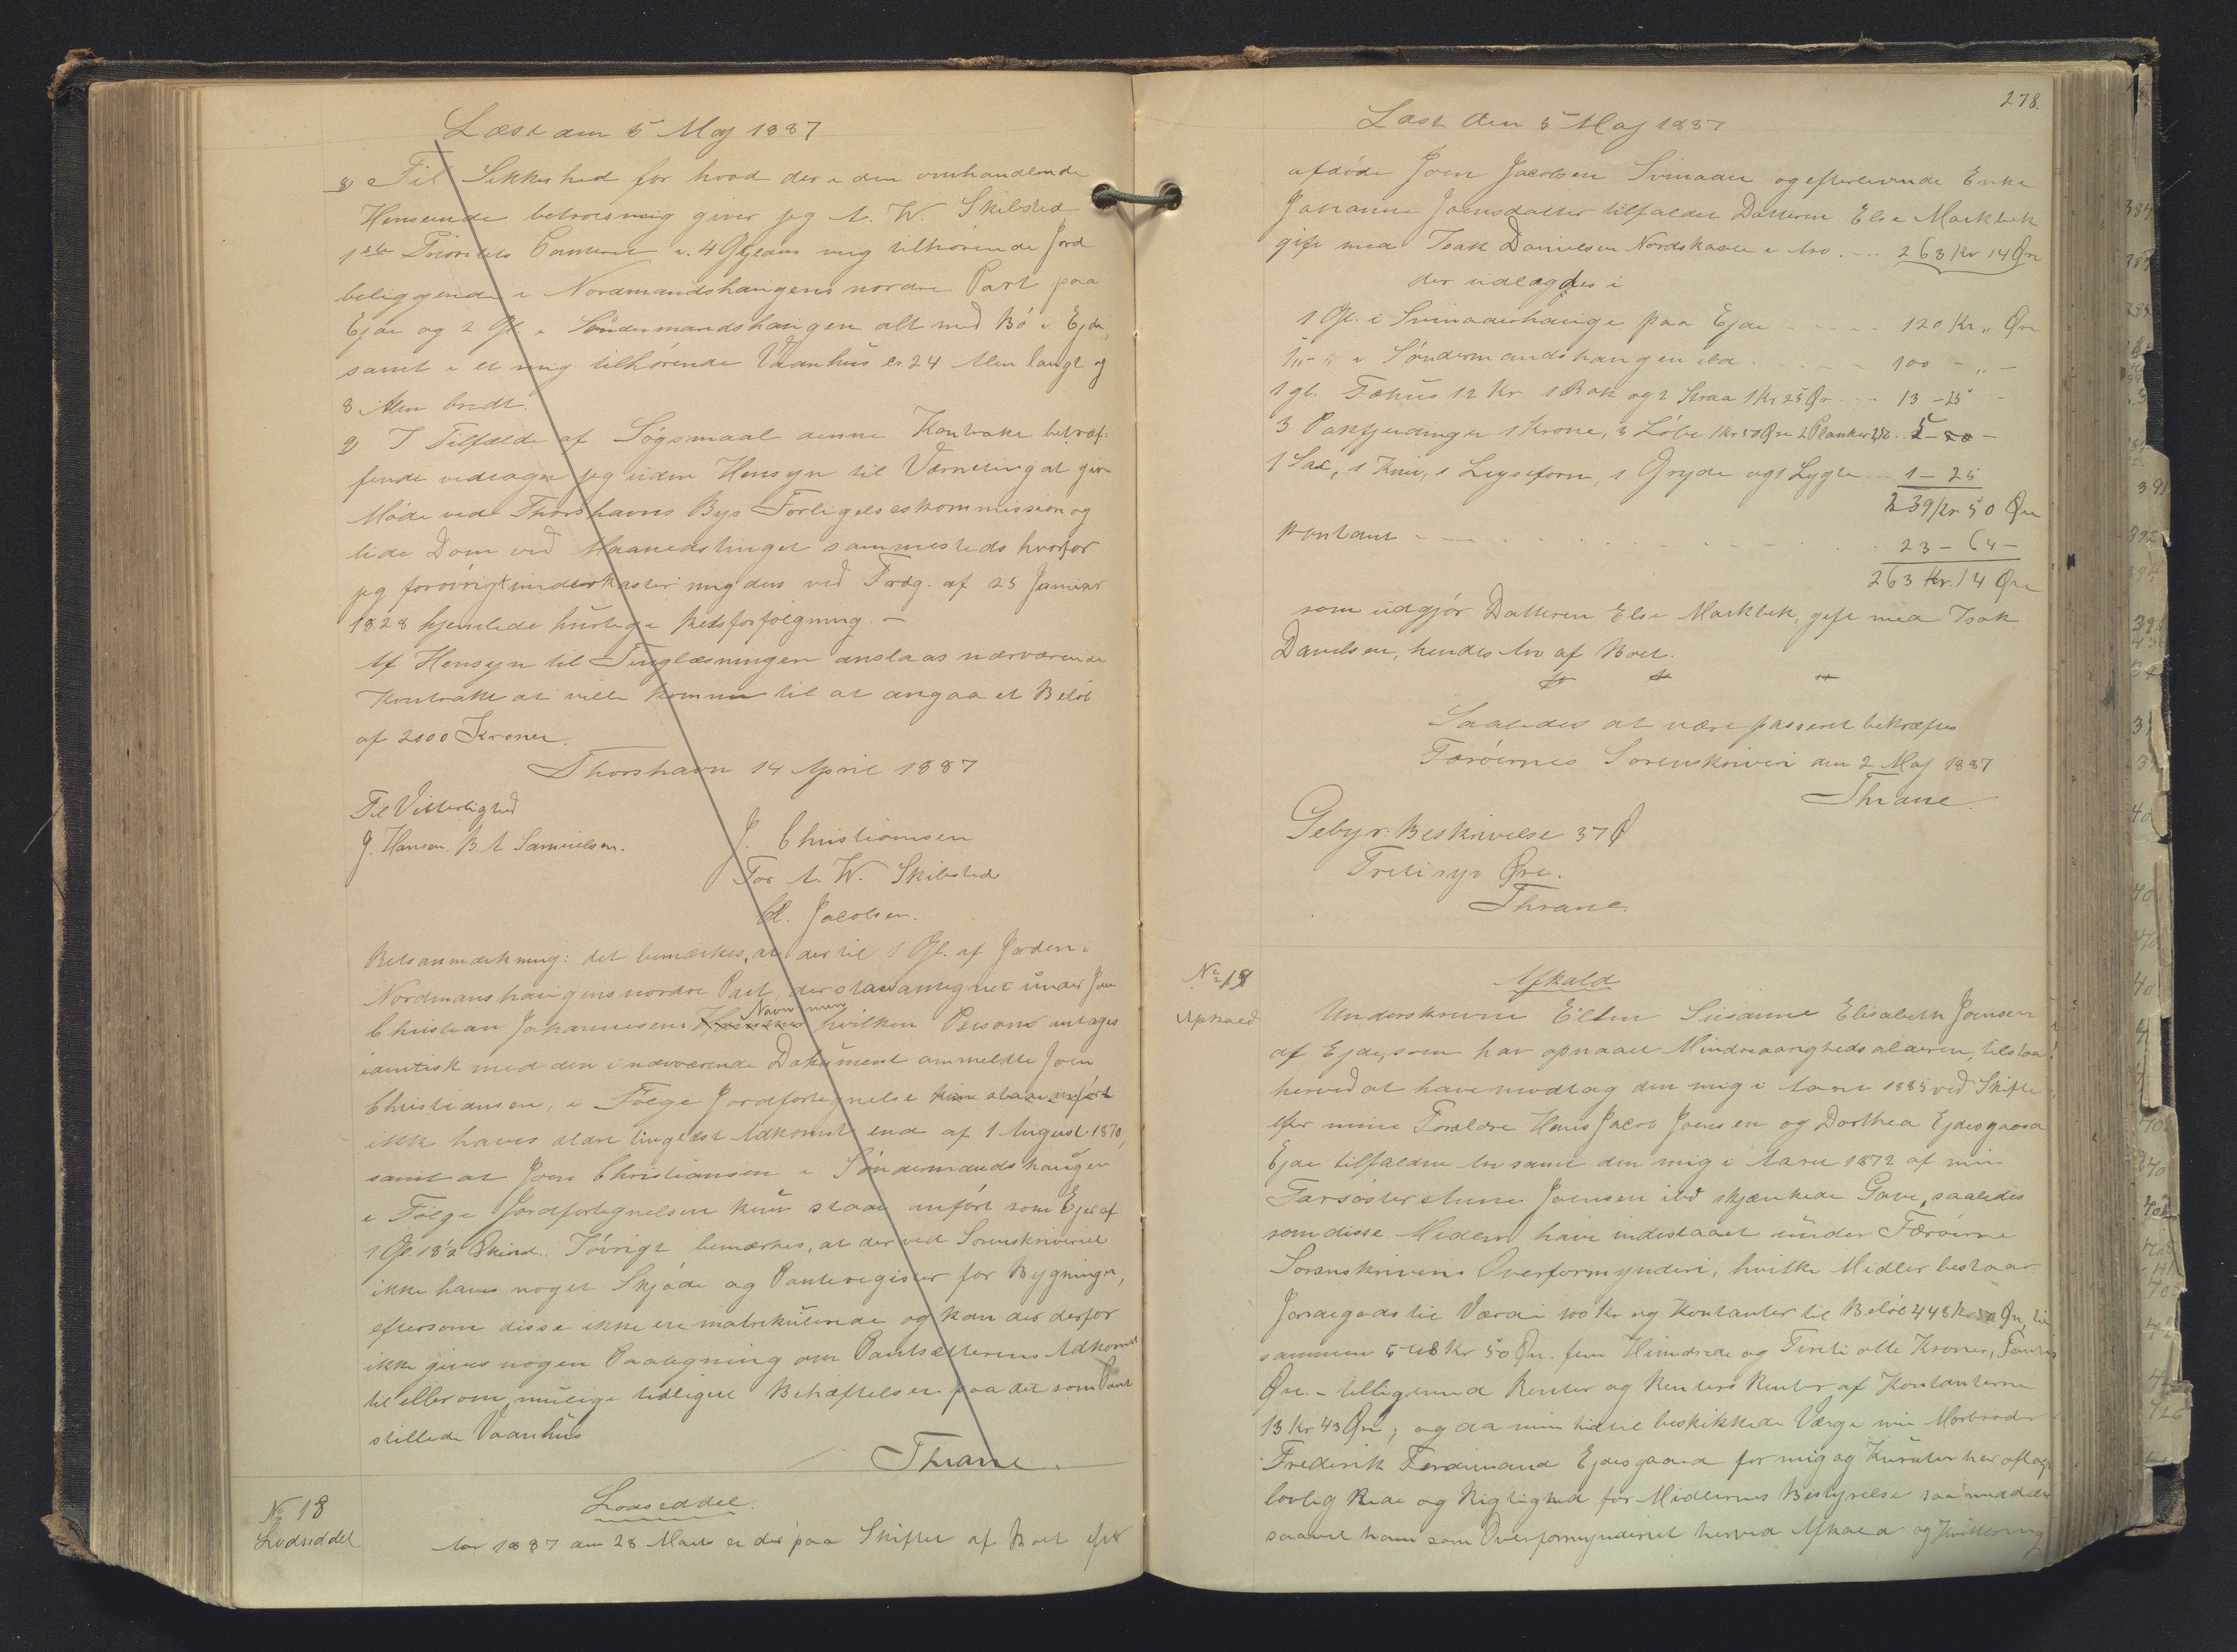 Læst den 5 Maj 1887
8) Til Sikkerhed for hvad der i den omhandlende
Henseende betroes mig giver jeg A. W. Skibsted
1ste Prioritets Panteret i 4 Gylden mig tilhørende Jord
beliggende i Nordmandshaugens nordre Part paa
Ejde og 2 Gl. i Søndermandshaugen alt med Bø i Ejde,
samt i et mig tilhørende Vaanhus er 24 Alen langt og
8 Alen bredt.
9) I Tilfælde af Søgsmaal denne Kontrakt betræf-
fende vedtager jeg uden Hensyn til Værneting at give
Møde ved Thorshavns Bys Forligelseskommission og
lide Dom ved Maanedstinget sammesteds hvorfor
jeg forøvrigt underkaster mig den ved Frdg. af 25 Januar
1828 hjemlede hurtige Retsforfølgning. –
Af Hensyn til Tinglæsningen anslaas nærværende
Kontrakt at ville komme til at angaa et Beløb
af 2000 Kroner.
Thorshavn 14 April 1887
Til Vitterlighed
J. Hansen. B. A Samuelsen.
J. Christiansen
For A. W. Skibsted
Cl. Jacobsen.
Retsanmærkning: det bemærkes, at der til 1 Gl. af Jorden i
Nordmanshaugens nordre Part, der staar antegnet under Joen
Christian Johannesens Navn men hvilken Person antages
identisk med den i nærværende Dokument ommeldte Joen
Christiansen, i Følge Jordfortegnelse kun staar anført
ikke haves ældre tinglæst Adkomst end af 1 August 1870,
samt at Joen Christiansen i Søndermandshaugen
i Følge Jordfortegnelsen kun staar anført som Ejer af
1 Gl. 18½ Skind. Iøvrigt bemærkes, at der ved Sorenskriveriet
ikke haves noget Skjøde og Panteregister for Bygninger,
eftersom disse ikke ere matrikulerede og kan der derfor
ikke gives nogen Paategning om Pantsætterens Adkomst
til eller om mulige tidligere Behæftelser paa det som Pant
stillede Vaanhus
Thrane.
No 18
Lodseddel
Lodseddel.
Aar 1887 den 28 Marts er der paa Skiftet af Boet efter
278.
Læst den 5 Maj 1887
afdøde Joen Jacobsen Svinaae og efterlevende Enke
Johanne Joensdatter tilfaldet Datteren Else Markbek
gift med Isak Danielsen Nordskaale i Arv. -- 263 Kr 14 Øre
der udlægges i
1 Gl. i Svinaaehauge paa Ejde - - - - 120 Kr „ Øre
1 „ - „ i Søndermandshaugen ibd - - - 100 - „ -
1 gl. Fæhus 12 Kr 1 Bak og 2 Straa 1 Kr 25 Ør -- 13 - 25 -
3 Pakfjerdinger 1 Krone, 3 Løbe 1 Kr 50 Øre 2 Planker 2,50 .. 5 - 00 -
1 Sax, 1 Kniv, 1 Lyseform, 1 Gryde og 1 Lygte ... 1 - 25
239 Kr 50 Øre
Kontant - - - 23 - 64 -
263 Kr. 14 Øre
som udgjør Datteren Else Markbek, gift med Isak
Danielsen, hendes Arv af Boet.
Saaledes at være passeret bekræftes
Færøernes Sorenskriveri den 2 Maj 1887
Thrane.
Gebyr: Beskrivelse 37 Ø
Tretisyv Øre.
Thrane.
No 19
Afkald
Afkald
Underskrevne Ellen Susanne Elisabeth Joensen
af Ejde, som har opnaaet Mindreaarighedsalderen, tilstaar
herved at have modtag den mig i Aaret 1885 ved Skifte
efter mine Forældre Hans Jacob Joensen og Dorthea Ejdesgaard
Ejde tilfaldne Arv samt den mig i Aaret 1872 af min
Farsøster Anne Joensen ibd skjænkede Gave, saaledes
som disse Midler have indestaaet under Færøerne
Sorenskriveris Overformynderi, hvilke Midler bestaar
Jordegods til Værdi 100 Kr og Kontanter til Beløb 448 Kr 50 Øre, til-
sammen 548 Kr 50 Øre. fem Hundrede og Firti otte Kroner, Femti
Øre. – tilligemed Renter og Renters Renter af Kontanterne
13 Kr 43 Øre; og da min hidtil beskikkede Værge min Morbroder
Frederik Ferdinand Ejdesgaard for mig og Kurator har aflagt
lovlig Rede og Rigtighed for Midlernes Bestyrelse saa meddeles
saavel ham som Overformynderiet herved Afkald og Kvittering